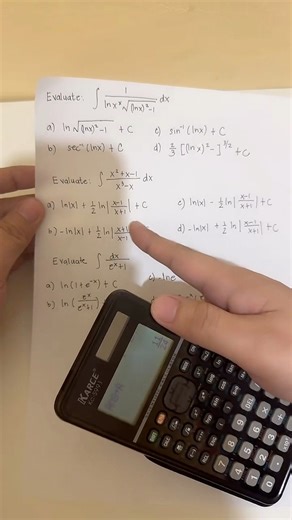 Evaluate: ∫ 1 / (ln x^x √((ln x)²-1)) dx
a) ln √((ln x)²-1) + C
c) sin⁻¹ (ln x) + C
b) sec⁻¹ (ln x) + C
d) 2/3 [(ln x)²-]^(3/2) + C
Evaluate: ∫ (x²+x-1)/(x³-x) dx
a) ln|x| + 1/2 ln|(x-1)/(x+1)| + C
c) ln|x| - 1/2 ln|(x-1)/(x+1)| + C
b) -ln|x| + 1/2 ln|(x+1)/(x-1)
d) -ln|x| + 1/2 ln|(x-1)/(x+1)| + C
Evaluate ∫ dx/(e^x+1)
a) ln(1+e^-x) + C
b) ln(e^x/(e^x+1))
KARCE